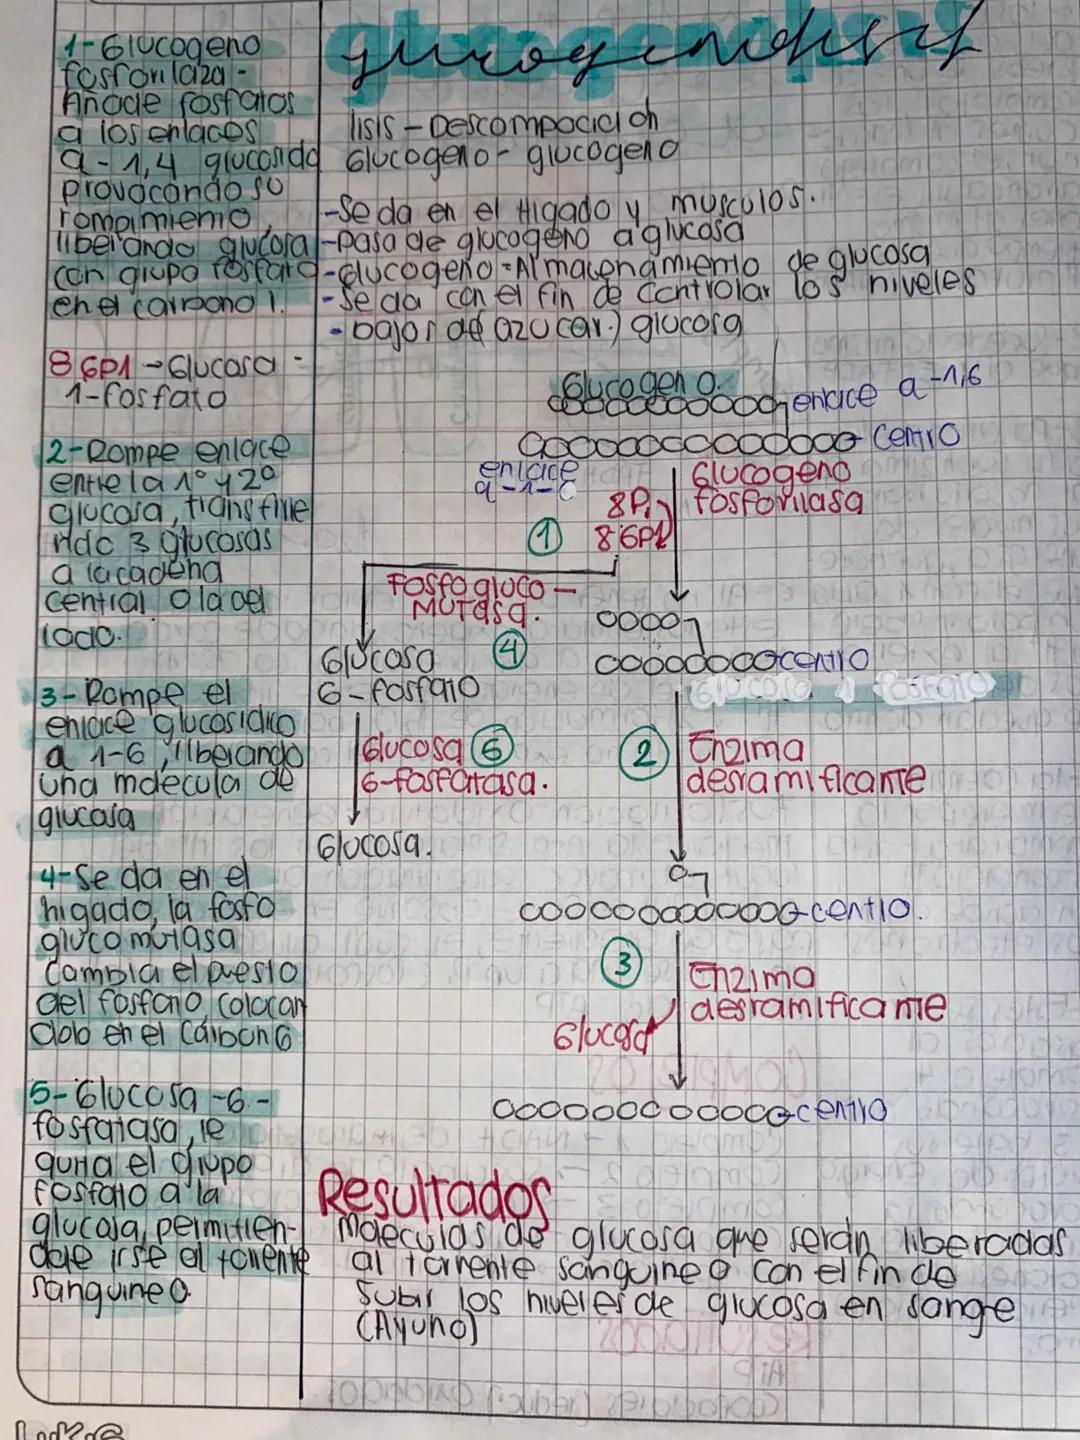 glucogenolisis
1-Glucogeno
fosforilaza-
Añade fosfatos
a los enlaces
a-1,4 glucosido
provocando su
rompimiento,
liberando glucosa
con grupo fosfato
en el carbono 1.
8 GP1→Glucosa-
1-fosfato
2-Rompe enlace
entre la 1° y 2°
glucosa, transfirie
ndo 3 glucosas
a la cadena
central o la del
lado.
3-Rompe el
enlace glucosidico
a 1-6, liberando
una molecula de
glucosa
4-Se da en el
higado, la fosfo
glucomutasa
cambia el puesto
del fosfato, colocan
dolo en el carbon 6
5-Glucosa-6-
fosfatasa, le
quita el grupo
fosfato a la
glucosa, permitien-
dole irse al torrente
sanguineo.
lisis-Descomposicioh
Glucogeno-glucogeno
-Se da en el Higado y musculos.
-Pasa de glucogeno a glucosa
-Glucogeno=Almacenamiento de glucosa
-Se da con el fin de controlar los niveles
-bajos de azucar.) glucosa
Glucogeno.
enlace a-1,6
centro
enlace
a-1-6
Glucogeno
fosforilasa
8Pi
1 8GP1
Fosfogluco-
Mutasa.
Glucosa 4
6-fosfato
centro
Glucosa 1 fosfato
Glucosa 6
6-fosfatasa.
2 Enzima
desramificante
Glucosa.
centro.
3 Enzima
desramificante
Glucosa
centro
Resultados
Moleculas de glucosa que serán liberadas
al torrente sanguineo con el fin de
subir los niveles de glucosa en sange
(Ayuno)